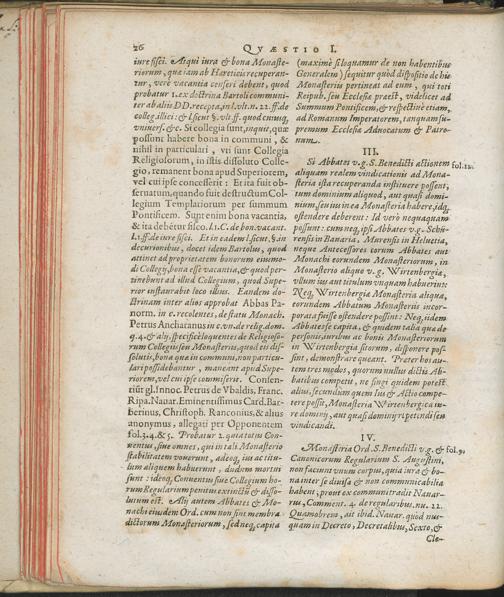 26 QVÆSTIO I.
iure fisci. Atqui iura & bona Monaste-
riorum, quæ iam ab Hæreticis recuperan-
tur, verè vacantia censeri debent, quod
probatur l. ex doctrina Bartoli communi-
ter ab aliis DD. recepta, in l. vlt. n. 22. ff. de
colleg. illici: & l. sicut §. vlt. ff. quod cuiusq,
vniuers. & c. Si collegia sunt, inquit, quæ
possunt habere bona in communi, &
nihil in particulari, vti sunt Collegia
Religiosorum, in istis dissoluto Colle-
gio, remanent bona apud Superiorem,
vel cui ipse concesserit: Et ita fuit ob-
seruatum, quando fuit destructum Col-
legium Templariorum per summum
Pontificem. Sunt enim bona vacantia,
& ita debetur fisco. l. 1. C. de bon. vacant.
l. 1. ff. de iure fisci. Et in eadem l. sicut, §. in
decurionibus, docet idem Bartolus, quod
attinet ad proprietatem bonorum eiusmo-
di Collegij, bona esse vacantia, & quod per-
tinebunt ad illud Collegium, quod Supe-
rior instaurabit loco illius. Eandem do-
ctrinam inter alios approbat Abbas Pa-
norm. in c. recolentes, de statu Monach.
Petrus Ancharanus in c. vn. de relig. dom.
q. 4. & alij, specificè loquentes de Religioso-
rum Collegiis seu Monasteriis, quod eis dis-
solutis, bona quæ in communi, non particu-
lari possidebantur, maneant apud Supe-
riorem, vel cui ipse commiserit. Consen-
tiunt gl. Innoc. Petrus de Vbaldis, Franc.
Ripa. Nauar. Eminentissimus Card. Bar-
berinus, Christoph. Ranconius, & alius
anonymus, allegati per Opponentem
fol. 3. 4. & 5. Probatur 2. quia totus Con-
uentus, siue omnes, qui in tali Monasterio
stabilitatem vouerunt, adeoq, ius ac titu-
lum aliquem habuerunt, dudum mortui
sunt: ideoq, Conuentus siue Collegium ho-
rum Regularium penitus extinctum & disso-
lutum est. Alij autem Abbates & Mo-
nachi eiusdem Ord. cum non sint membra
dictorum Monasteriorum, sed neq, capita
(maximè si loquamur de non habentibus
Generalem) sequitur quod dispositio de his
Monasteriis pertineat ad eum, qui toti
Reipub. seu Ecclesiæ præest, videlicet ad
Summum Pontificem, & respectiuè etiam,
ad Romanum Imperatorem, tanquam su-
premum Ecclesiæ Aduocatum & Patro-
num.
III.
Si Abbates v. g. S. Benedicti actionem
aliquam realem vindicationis ad Mona-
steria ista recuperanda instituere possent,
tum dominium aliquod, aut quasi domi-
nium, seu ius in ea Monasteria habere, idq,
ostendere deberent: Id verò nequaquam
possunt: cum neq, ipsi Abbates v. g. Schü-
rensis in Bauaria, Murensis in Heluetia,
neque Antecessores eorum Abbates aut
Monachi eorundem Monasteriorum, in
Monasterio aliquo v. g. Wirtenbergia,
vllum ius aut titulum vnquam habuerint:
Neq, Wirtenbergia Monasteria aliqua,
eorundem Abbatum Monasteriis incor-
porata fuisse ostendere possunt: Neq, iidem
Abbates se capita, & quidem talia quæ de
personis, iuribus ac bonis Monasteriorum
in Wirtenbergia sitorum, disponere pos-
sint, demonstrare queant. Præter hos au-
tem tres modos, quorum nullus dictis Ab-
batibus competit, ne fingi quidem potest
alius, secundum quem Ius & Actio compe-
tere possit, Monasteria Wirtenbergica iu-
re dominij, aut quasi dominij repetendi seu
vindicandi.
IV.
Monasteria Ord. S. Benedicti v. g. &
Canonicorum Regularium S. Augustini,
non faciunt vnum corpus, quia iura & bo-
na inter se diuisa & non communicabilia
habent; prout ex communi tradit Nauar-
rus, Comment. 4. de regularibus. nu. 22.
Quamobrem, ait ibid. Nauar. quod nus-
quam in Decreto, Decretalibus, Sexto, &
Cle-
fol. 12.
fol. 9.